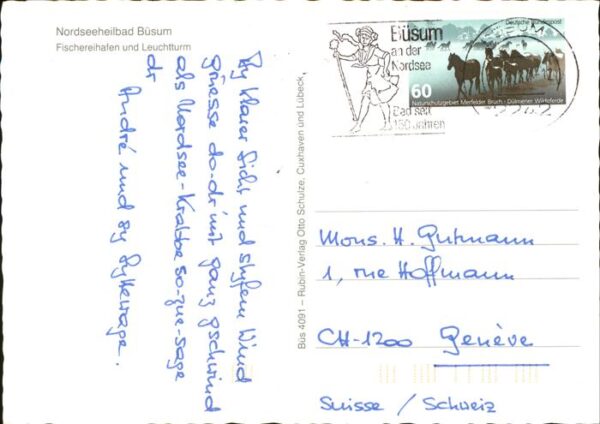 Nordseeheilbad Büsum
Fischereihafen und Leuchtturm
By klarer Sicht und styfem Wind
grüesse do-dr mit ganz gschwind
als Nordsee-Krabbe so-zue-sage
dr
André und sy
Büs 4091 – Rubin-Verlag Otto Schulze, Cuxhaven und Lübeck,
Büsum
an der
Nordsee
Bad seit
150 Jahren
BÜSUM
Deutsche Bundespost
60
Naturschutzgebiet Merfelder Bruch · Dülmener Wildpferde
Mons. H. Gutmann
1, rue Hoffmann
CH-1200 Genève
Suisse / Schweiz